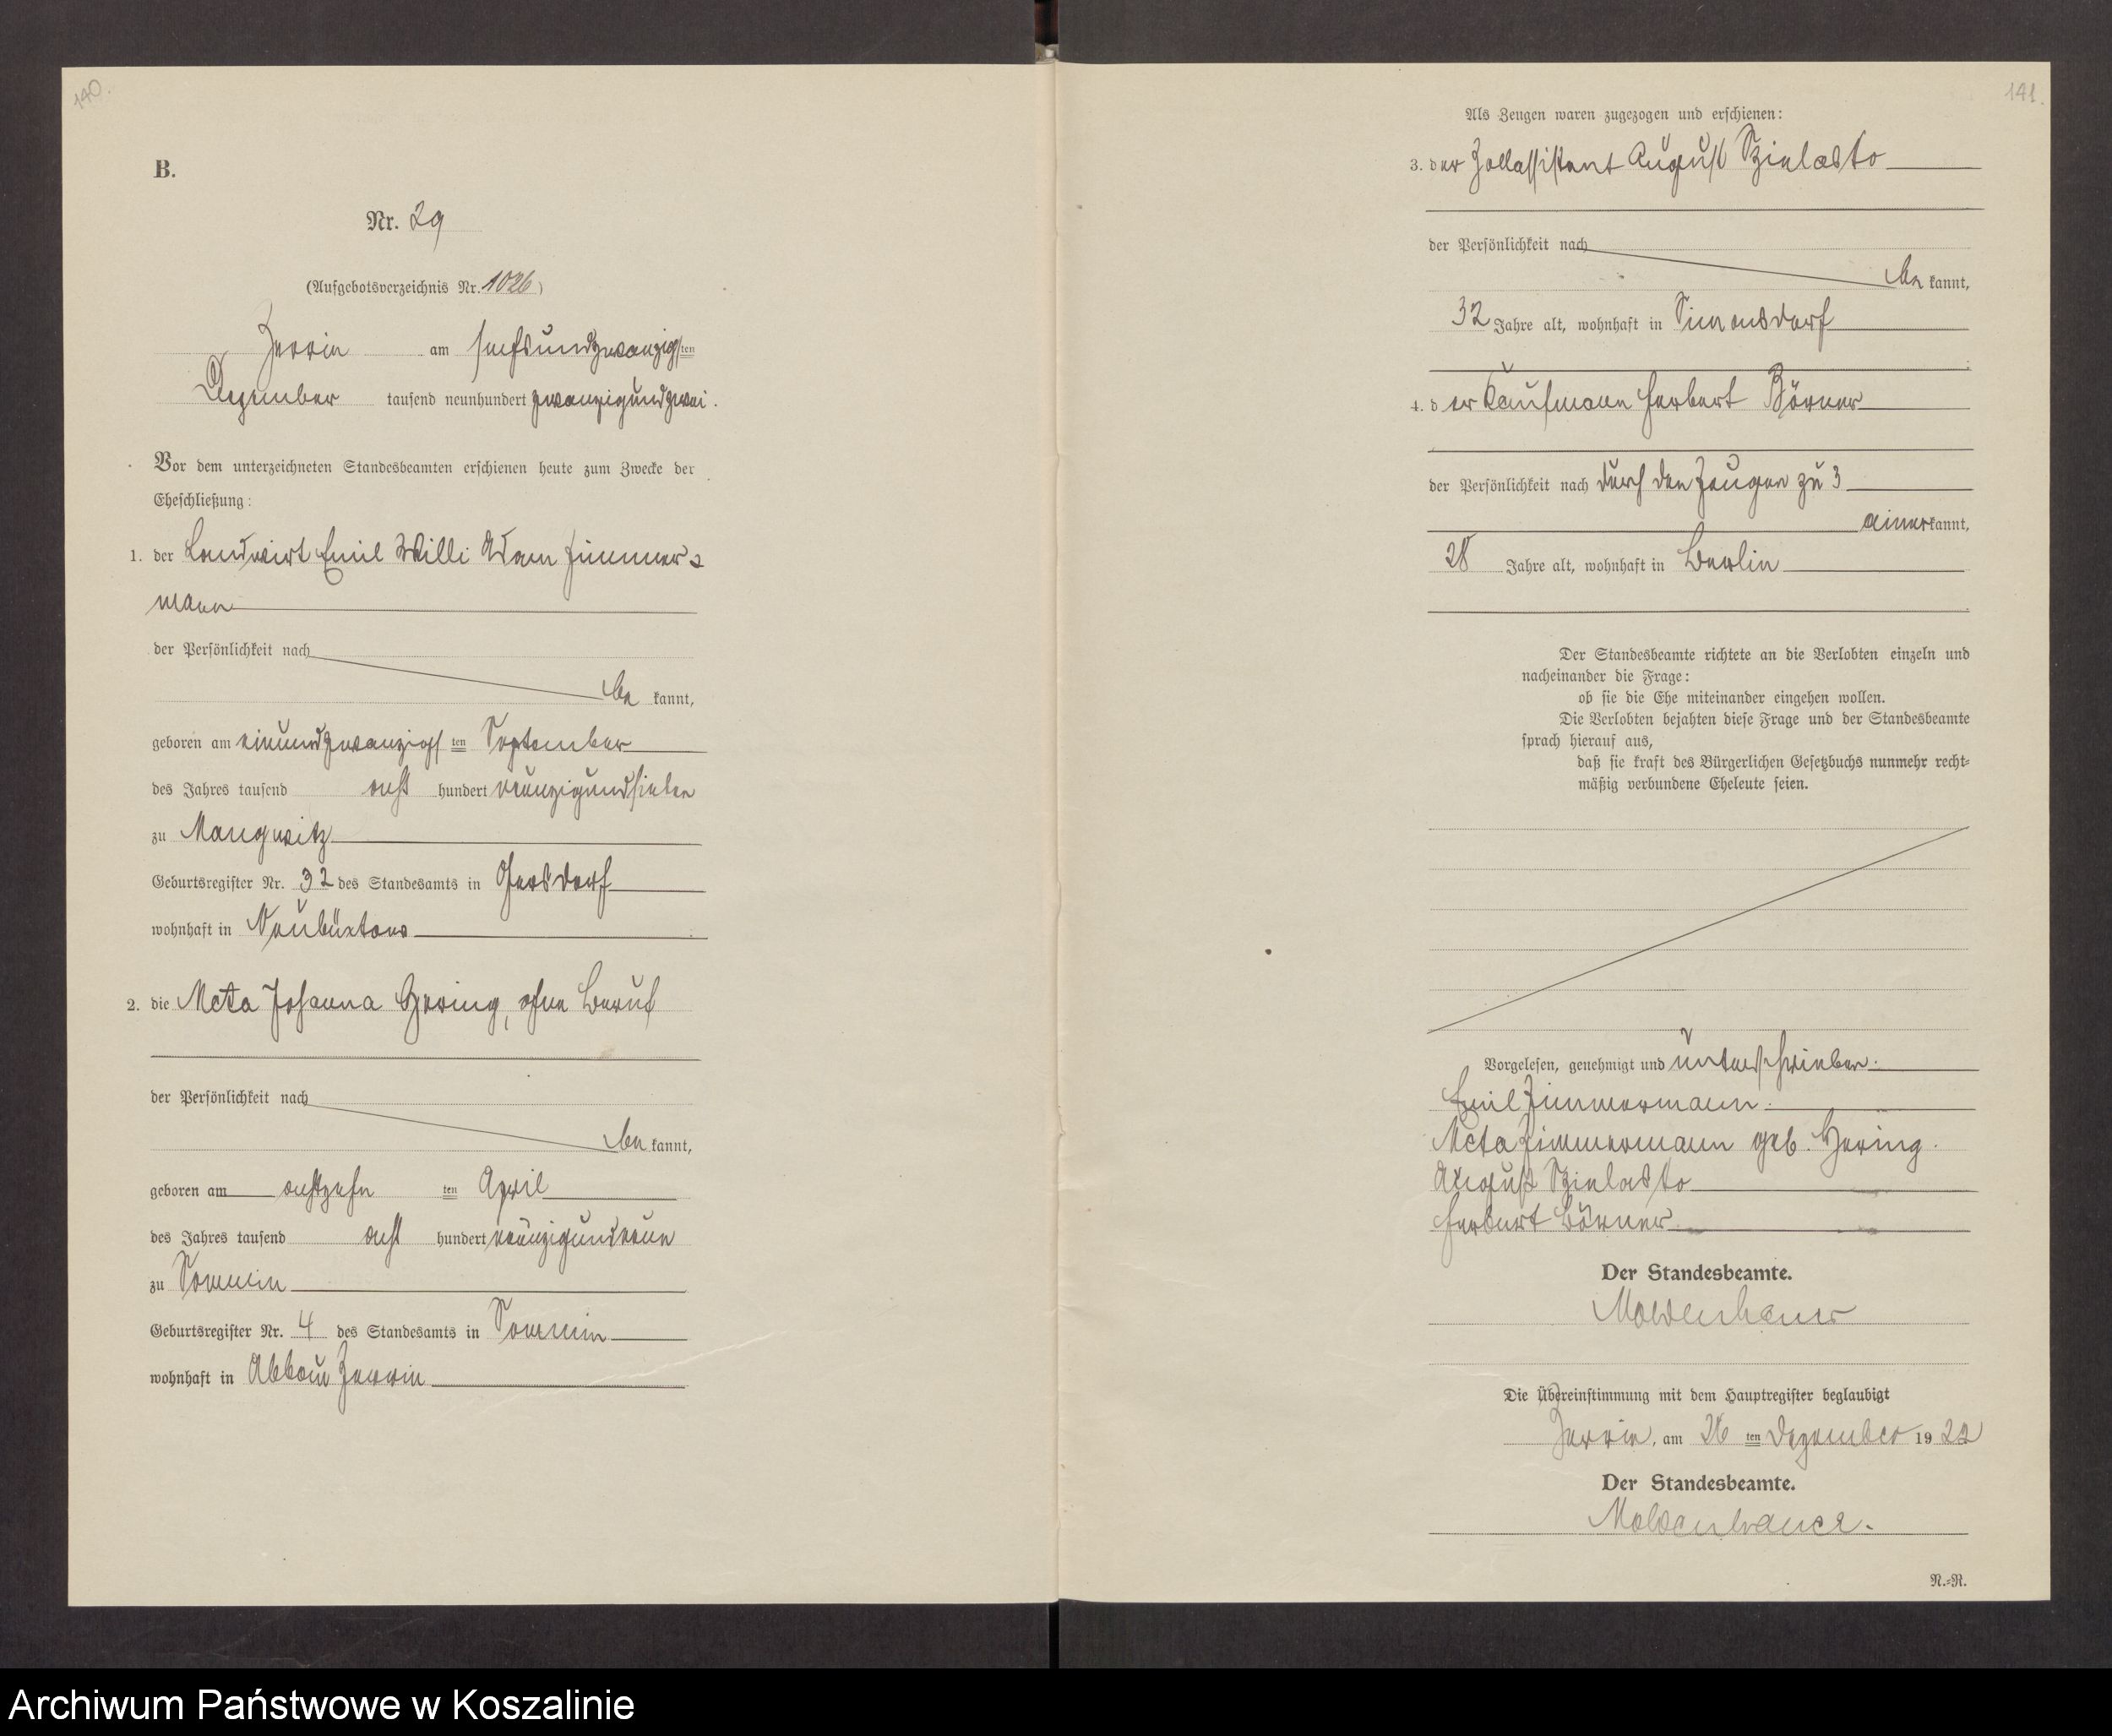 140.
B.
Nr. 29
(Aufgebotsverzeichnis Nr. 1026)
Zerrin am sechsundzwanzigsten
Dezember tausend neunhundert zwanzigundzwei.
Vor dem unterzeichneten Standesbeamten erschienen heute zum Zwecke der
Eheschließung:
1. der Landwirt Emil Willi Adam Zimmer-
mann
der Persönlichkeit nach
be kannt,
geboren am einundzwanzigsten September
des Jahres tausend acht hundert neunzigundsieben
zu Mangwitz
Geburtsregister Nr. 32 des Standesamts in Gersdorf
wohnhaft in
2. die Meta Johanna Hering, ohne Beruf
der Persönlichkeit nach
be kannt,
geboren am achtzehn ten April
des Jahres tausend acht hundert neunzigundneun
zu Sommin
Geburtsregister Nr. 4 des Standesamts in Sommin
wohnhaft in Abbau Zerrin
141.
Als Zeugen waren zugezogen und erschienen:
3. der Zollassistent August
der Persönlichkeit nach
be kannt,
32 Jahre alt, wohnhaft in Simonsdorf
4. der Kaufmann Herbert Börner
der Persönlichkeit nach durch den Zeugen zu 3
anerkannt,
28 Jahre alt, wohnhaft in Berlin
Der Standesbeamte richtete an die Verlobten einzeln und
nacheinander die Frage:
ob sie die Ehe miteinander eingehen wollen.
Die Verlobten bejahten diese Frage und der Standesbeamte
sprach hierauf aus,
daß sie kraft des Bürgerlichen Gesetzbuchs nunmehr recht-
mäßig verbundene Eheleute seien.
Vorgelesen, genehmigt und unterschrieben.
Emil Zimmermann.
Meta Zimmermann geb. Hering.
August
Herbert Börner
Der Standesbeamte.
Moldenhauer
Die Übereinstimmung mit dem Hauptregister beglaubigt
Zerrin, am 26 ten Dezember 1922
Der Standesbeamte.
Moldenhauer.
N.-R.
Archiwum Państwowe w Koszalinie